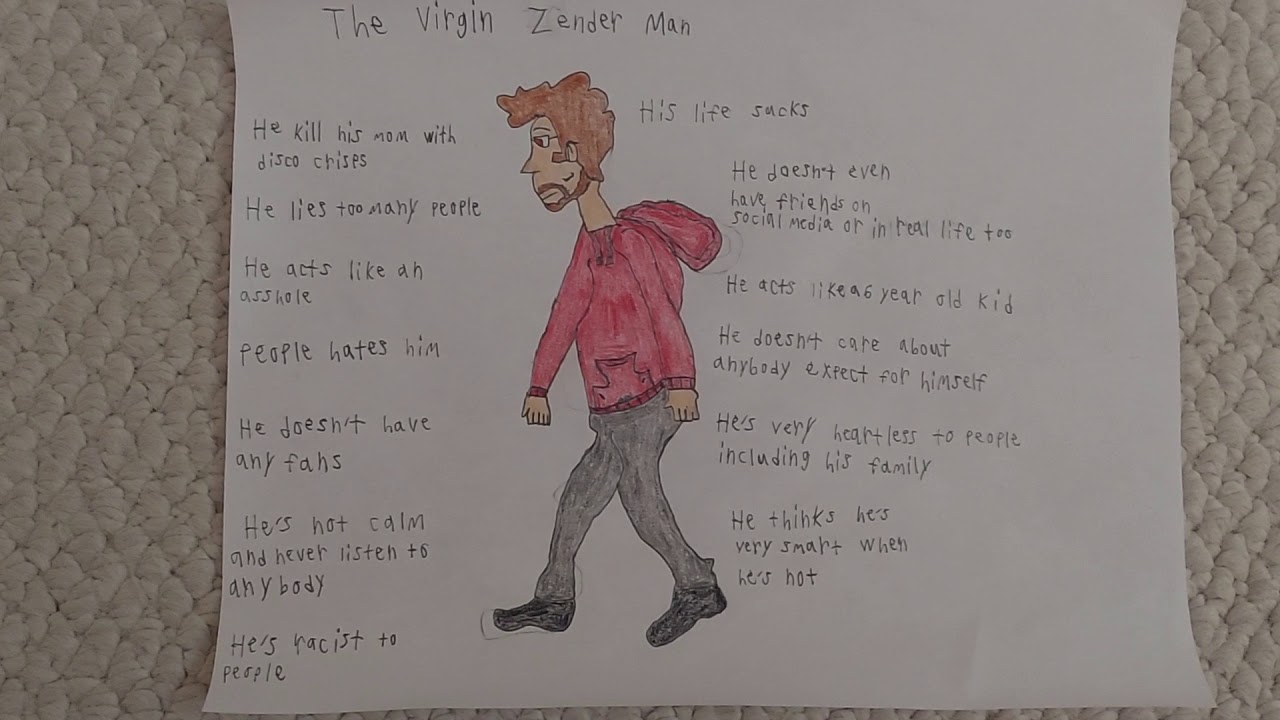 The Virgin Zender Man
He kill his mom with
disco crises
He lies too many people
He acts like an
asshole
People hates him
He doesn't have
any fans
He's not calm
and never listen to
anybody
He's racist to
people
His life sucks
He doesn't even
have friends on
social media or in real life too
He acts like a 6 year old kid
He doesn't care about
anybody expect for himself
He's very heartless to people
including his family
He thinks he's
very smart when
he's not